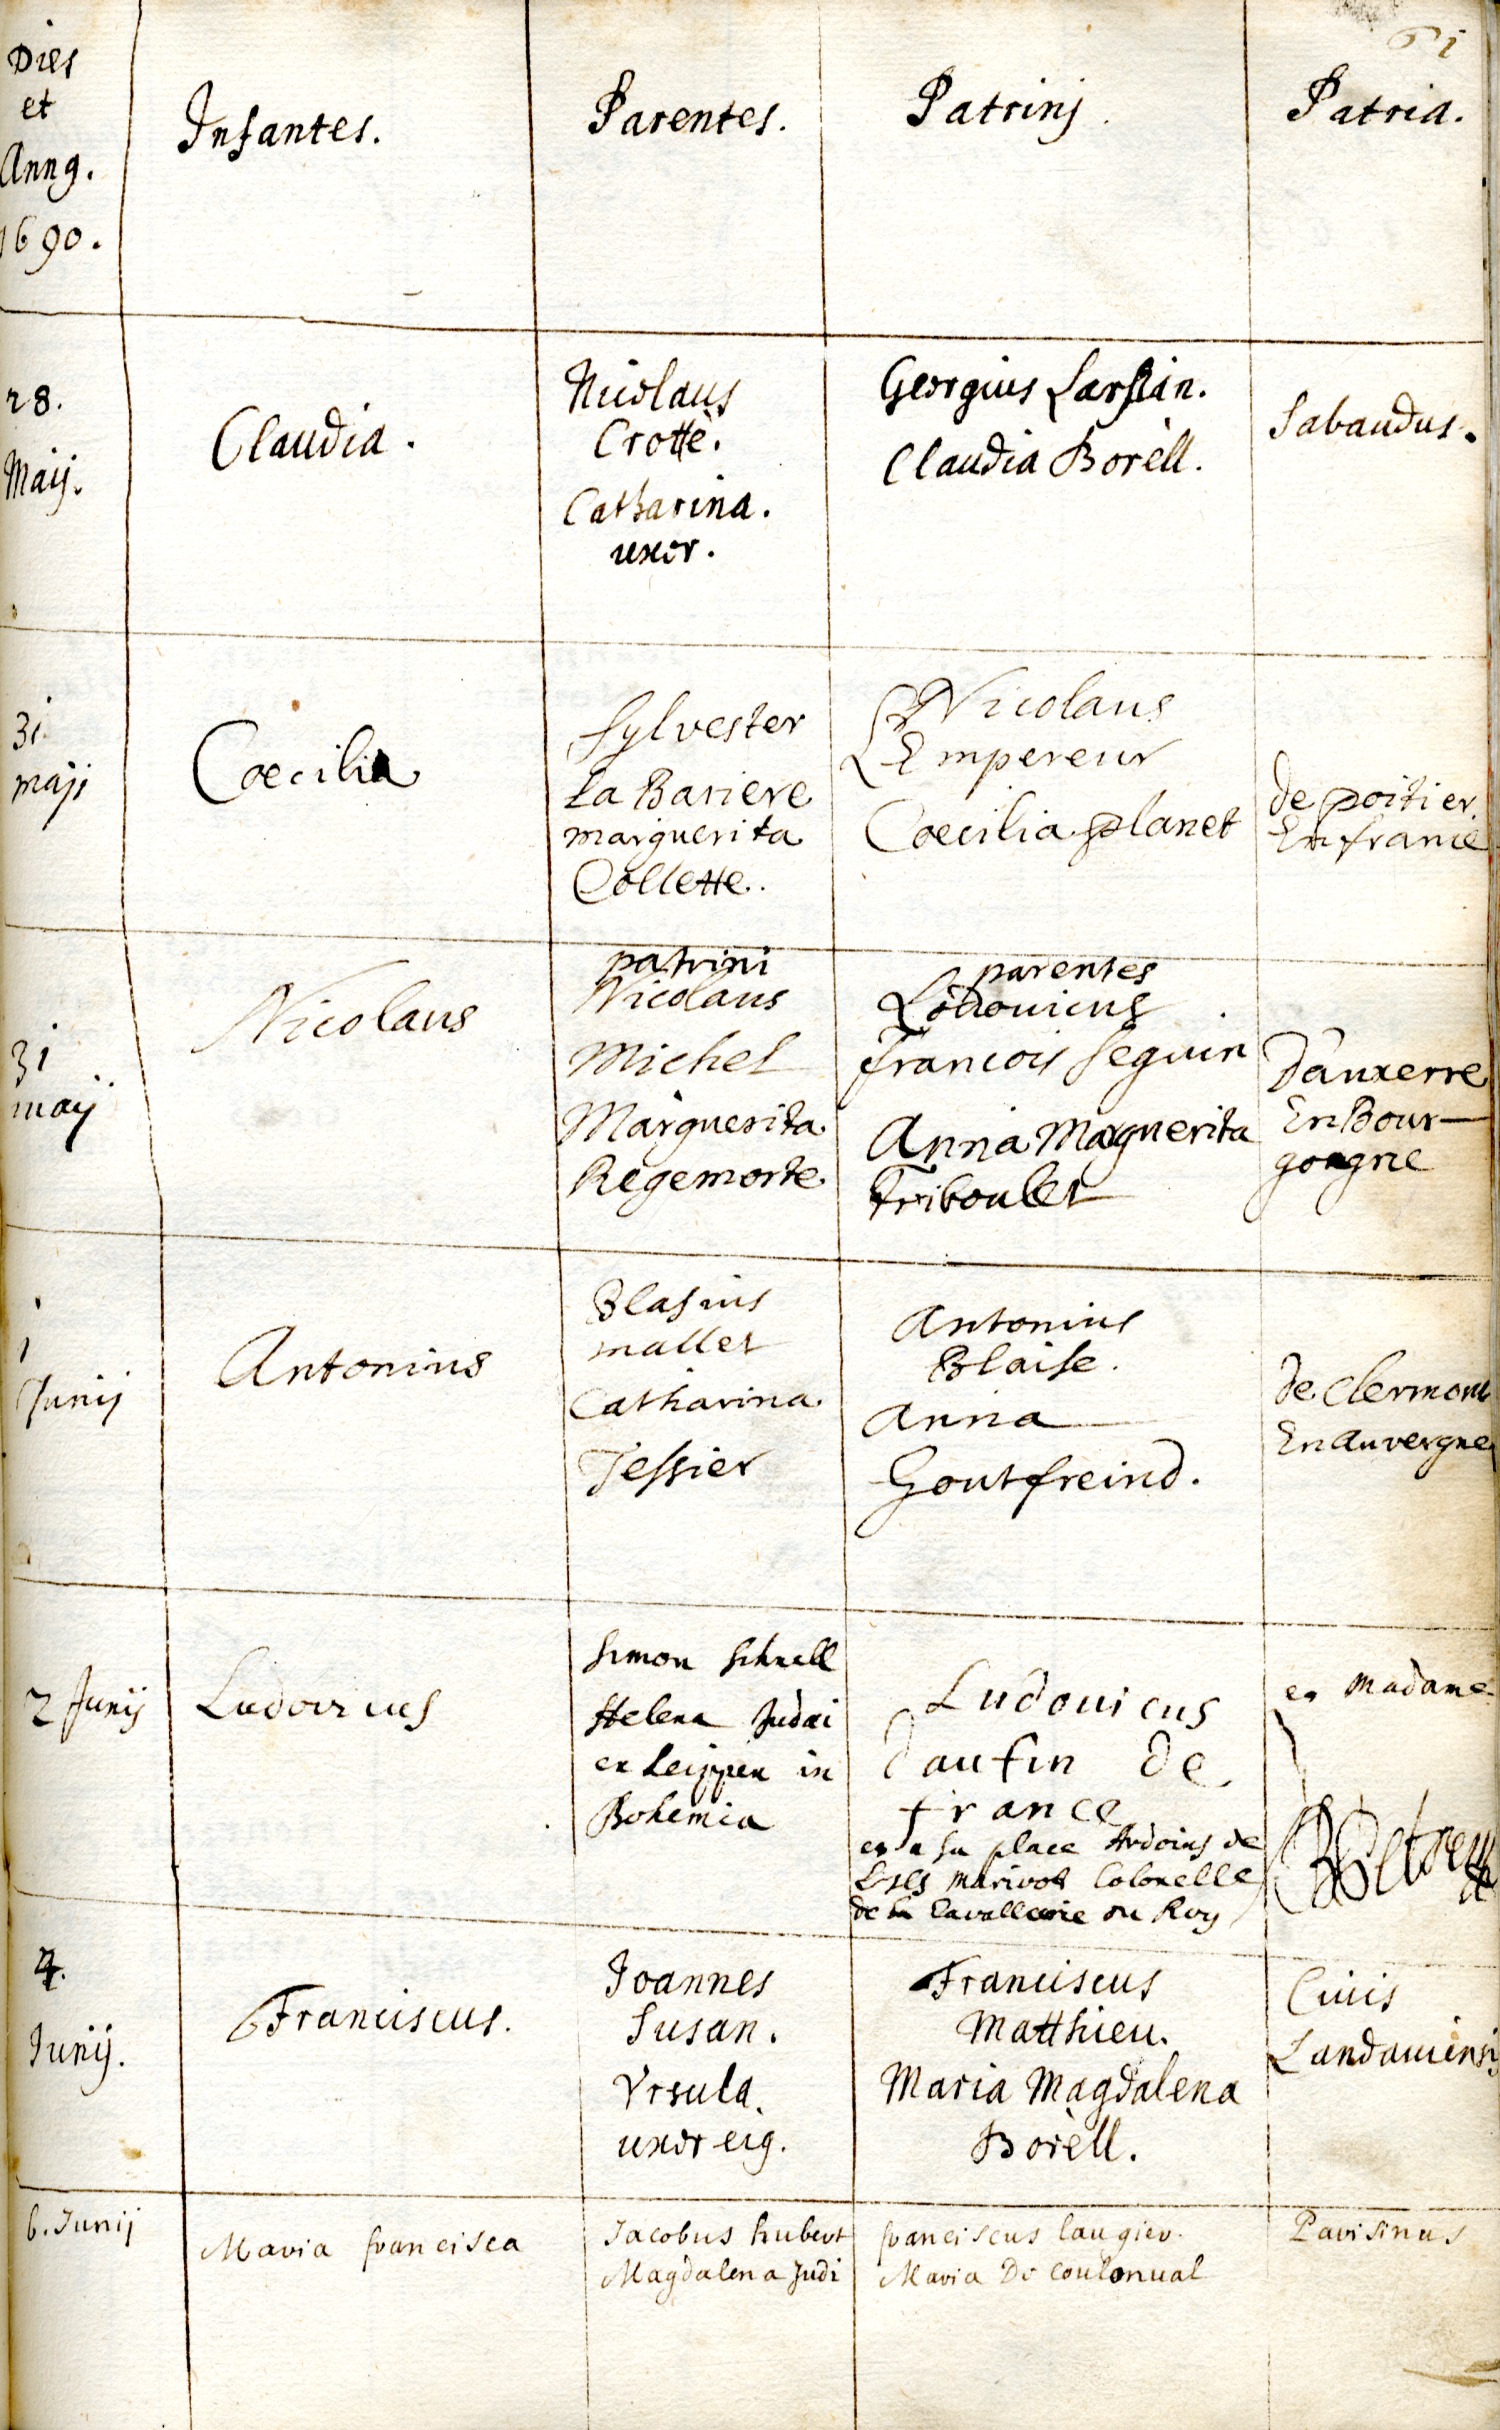 61
Dies
et
Anno.
1690.
Infantes.
Parentes.
Patrinj.
Patria.
28.
Maij.
Claudia.
Nicolaus
Crottè.
Catharina.
uxor.
Georgius
Claudia Borèll.
Sabaudus.
31
maji
Coecilia
Sylvester
La Bariere
marguerita
Collette.
Nicolaus
L'Empereur
Coecilia planet
de poitier
En france
31
maij
Nicolaus
patrini
Nicolaus
Michel
Marguerita
Regemorte
parentes
Lodouicus
francois seguin
Anna Marguerita
Triboulet
D'auxerre
En Bour-
gongne
1
Junij
Antonius
Blasius
mallet
Catharina
Tessier
Antonius
Blaise.
Anna
Goutfreind.
de clermont
En auvergne
2 Junij
Ludovicus
Simon Schnell
Helena Judai
ex Leippen in
Bohemia
Ludouicus
daufin de
france
et a sa place Ardoins de
marivot Colonelle
de la Cavallerie du Roy
et Madame
4.
Junij.
Franciscus.
Joannes
Susan.
Vrsula.
uxor eig.
Franciscus
Matthieu.
Maria Magdalena
Borèll.
Ciuis
Landauiensis
6. Junij
Maria francisca
Jacobus hubert
Magdalena Judi
franciscus laugier.
Maria De coulonual
Parisinus